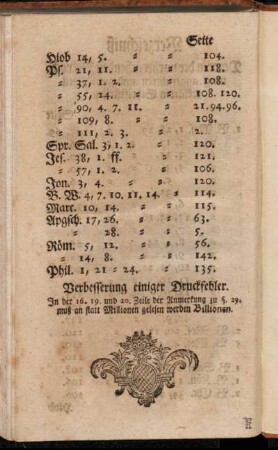 Seite
Hiob 14, 5. „ „ 104.
Ps. 21, 11. „ „ 118.
„ 37, 1. 2. „ „ 108.
„ 55, 24. „ „ 108. 120.
„ 90, 4. 7. 11. „ 21. 94. 96.
„ 109, 8. „ „ 108.
„ 111, 2. 3. „ „ 2.
Spr. Sal. 3, 1. 2. „ „ 120.
Jes. 38, 1. ff. „ „ 121.
„ 57, 1. 2. „ „ 106.
Jon. 3, 4. „ „ 120.
B. W. 4, 7. 10. 11. 14. „ „ 114.
Marc. 10, 14. „ „ 115.
Apgsch. 17, 26. „ „ 63.
„ 28. „ „ 5.
Röm. 5, 12. „ „ 56.
„ 14, 8. „ „ 142.
Phil. 1, 21 - 24. „ „ 135.
Verbesserung einiger Druckfehler.
In der 16. 19. und 20. Zeile der Anmerkung zu §. 29.
muß an statt Millionen gelesen werden Billionen.